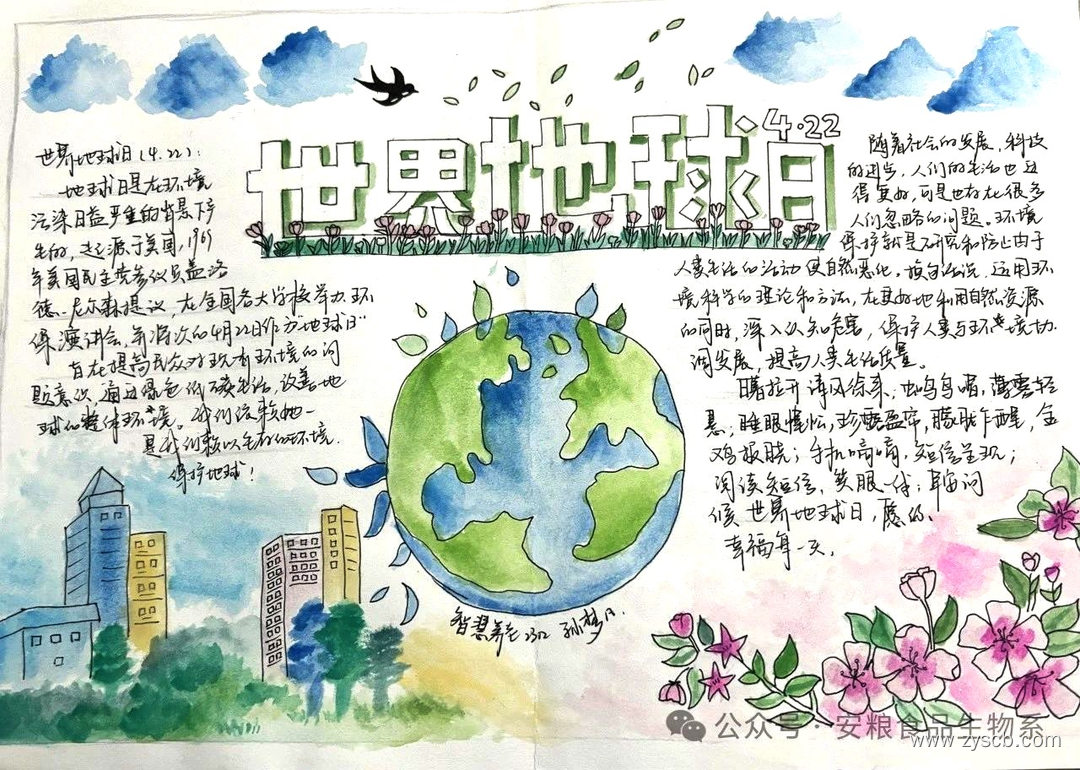 世界地球日
4.22
世界地球日(4.22):
地球日是在环境
污染日益严重的背景下产
生的,起源于美国,1969
年美国民主党参议员盖洛
德·尼尔森提议,在全国各大学校举办环
保演讲会,年次的4月22日作为"地球日"
旨在提高民众对现有环境的问
题意识,通过绿色低碳生活,改善地
球的整体环境。我们依赖她一
是我们赖以生存的环境.
保护地球!
随着社会的发展、科技
的进步,人们的生活也过
得更好,可是也存在很多
人们忽略的问题。环境
保护就是研究和防止由于
人类生活的活动使自然恶化,换句话说,运用环
境科学的理论和方法,在更好地利用自然资源
的同时,深入认知危害,保护人类与环境协
调发展,提高人类生活质量。
曙拉开清风徐来,虫鸣鸟唱,薄雾轻
悬,睡眼惺忪,珍露盈帘,朦胧乍醒,金
鸡报晓;手机嘀嘀,短信呈现;
阅读短信,笑眼一代;早安问
候世界地球日,愿你
幸福每一天.
智慧养老2302 孙梦
公众号·安粮食品生物系
www.zyscb.com